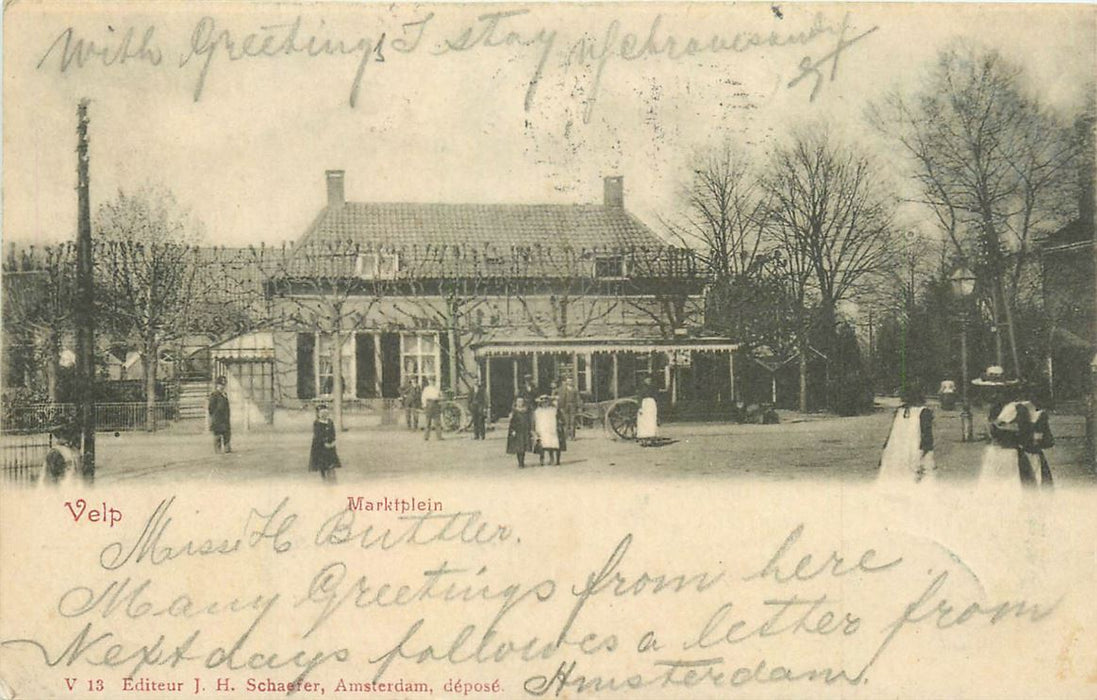 With Greetings I stay
Velp
Marktplein
Misse H Buttler.
Many Greetings from here.
Next days follows a letter from
Amsterdam.
V 13 Editeur J. H. Schaefer, Amsterdam, déposé.